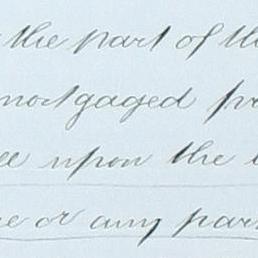 the part of th
mortgaged pr
upon the
or any par